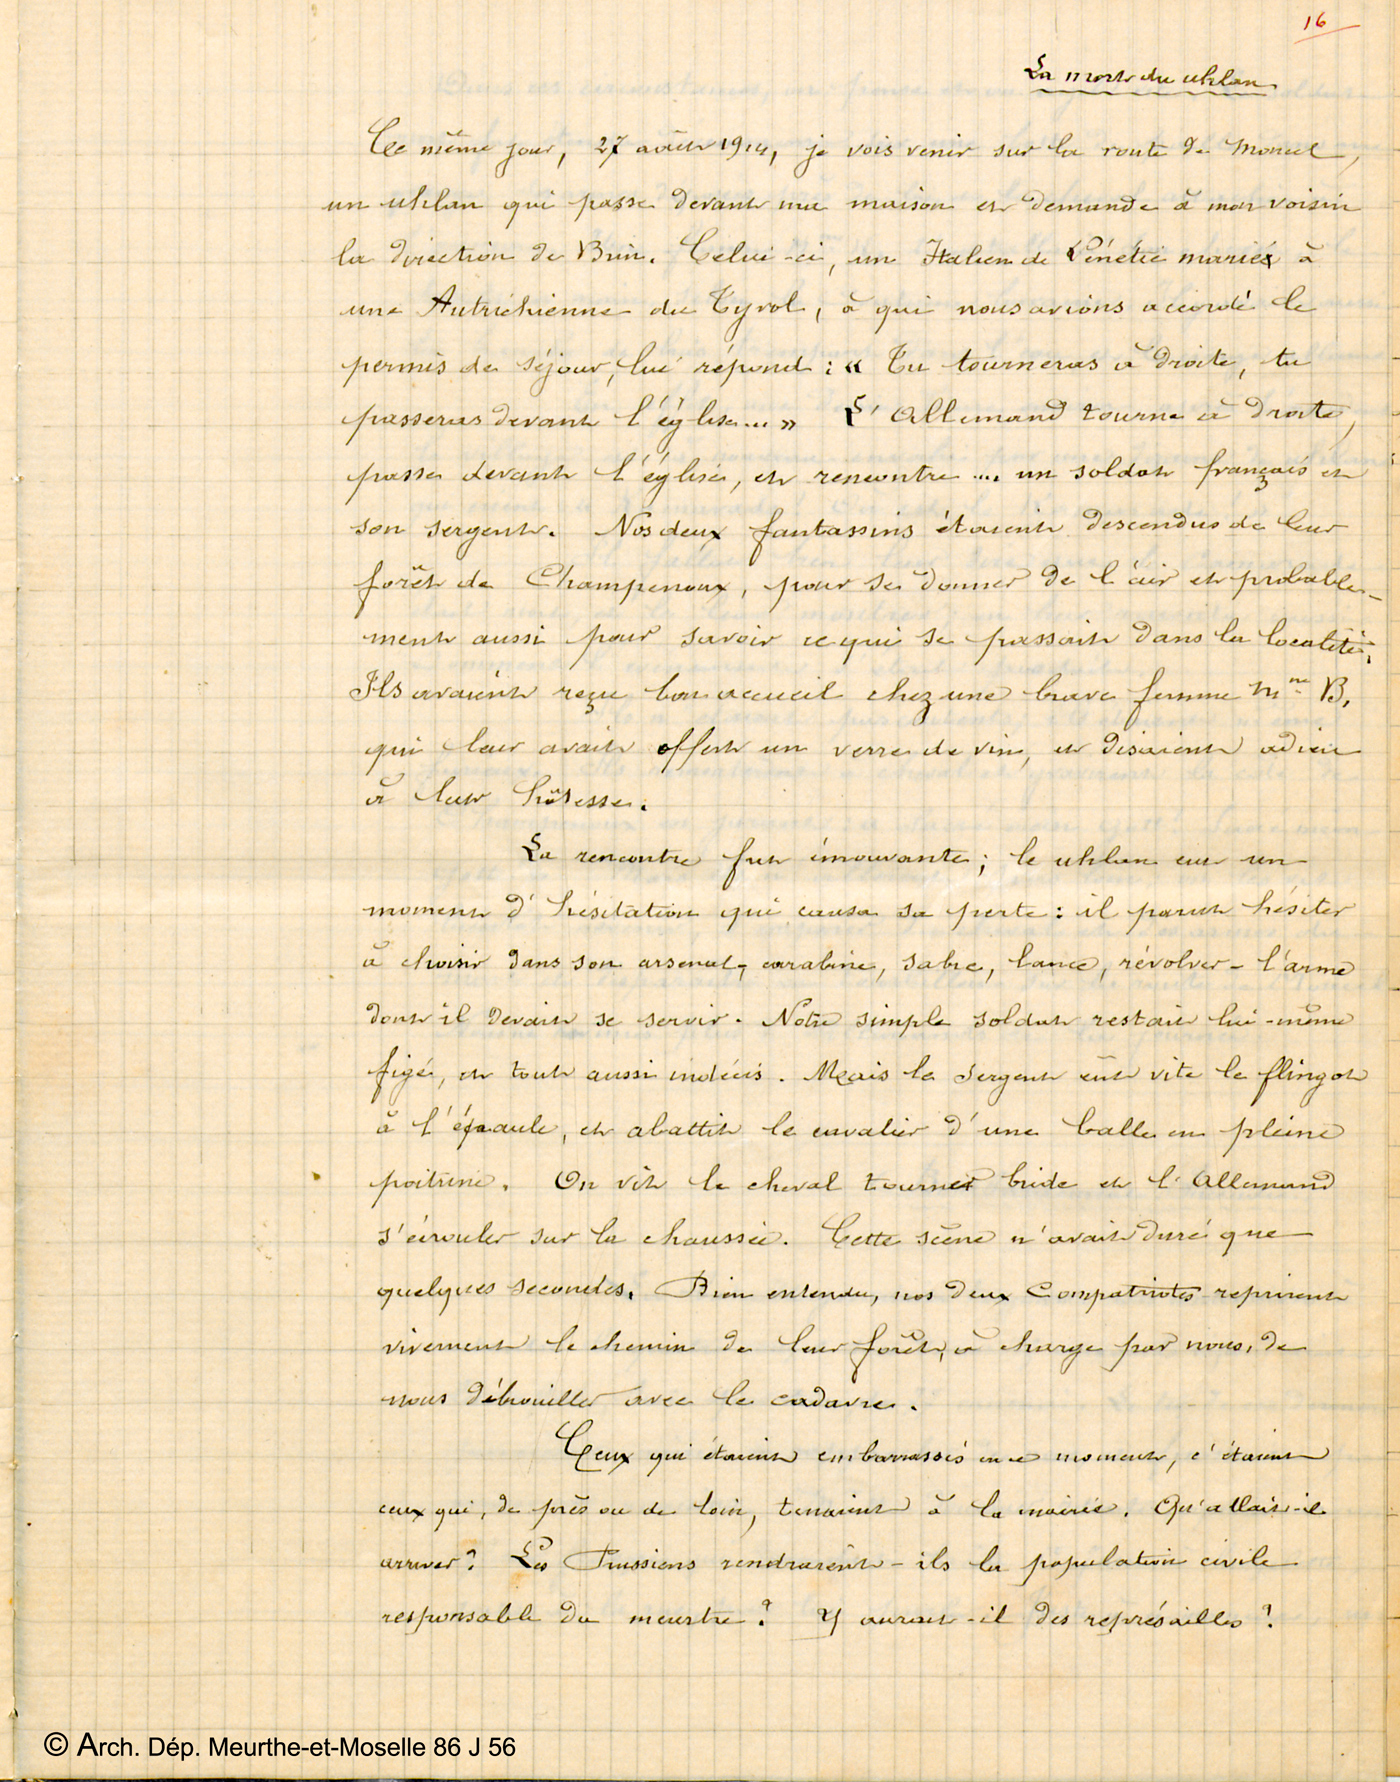 16
La mort du uhlan
Ce même jour, 27 août 1914, je vois venir sur la route de Moncel,
un uhlan qui passe devant ma maison et demande à mon voisin
la direction de Brin. Celui-ci, un Italien de Vénétie marié à
une Autrichienne du Tyrol, à qui nous avions accordé le
permis de séjour, lui répond : « Tu tourneras à droite, tu
passeras devant l'église... » L'Allemand tourne à droite,
passe devant l'église, et rencontre .... un soldat français et
son sergent. Nos deux fantassins étaient descendus de leur
forêt de Champenoux, pour se donner de l'air et probable-
ment aussi pour savoir ce qui se passait dans la localité.
Ils avaient reçu bon accueil chez une brave femme Mme B,
qui leur avait offert un verre de vin, et disaient adieu
à leur hôtesse.
La rencontre fut émouvante; le uhlan eut un
moment d'hésitation qui causa sa perte : il parut hésiter
à choisir dans son arsenal, carabine, sabre, lance, révolver - l'arme
dont il devait se servir. Notre simple soldat restait lui-même
figé, et tout aussi indécis. Mais le sergent eût vite le flingot
à l'épaule, et abattit le cavalier d'une balle en pleine
poitrine. On vit le cheval tourner bride et l'Allemand
s'écrouler sur la chaussée. Cette scène n'avait duré que
quelques secondes. Bien entendu, nos deux compatriotes reprirent
vivement le chemin de leur forêt, à charge par nous, de
nous débrouiller avec le cadavre.
Ceux qui étaient embarrassés en ce moment, c'étaient
ceux qui, de près ou de loin, tenaient à la mairie. Qu'allait-il
arriver? Les Prussiens rendraient-ils la population civile
responsable du meurtre? Y aurait-il des représailles?
© Arch. Dép. Meurthe-et-Moselle 86 J 56